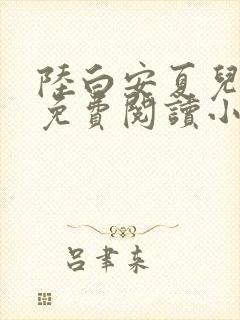 陸白安夏兒
免費閱讀小
呂聿來